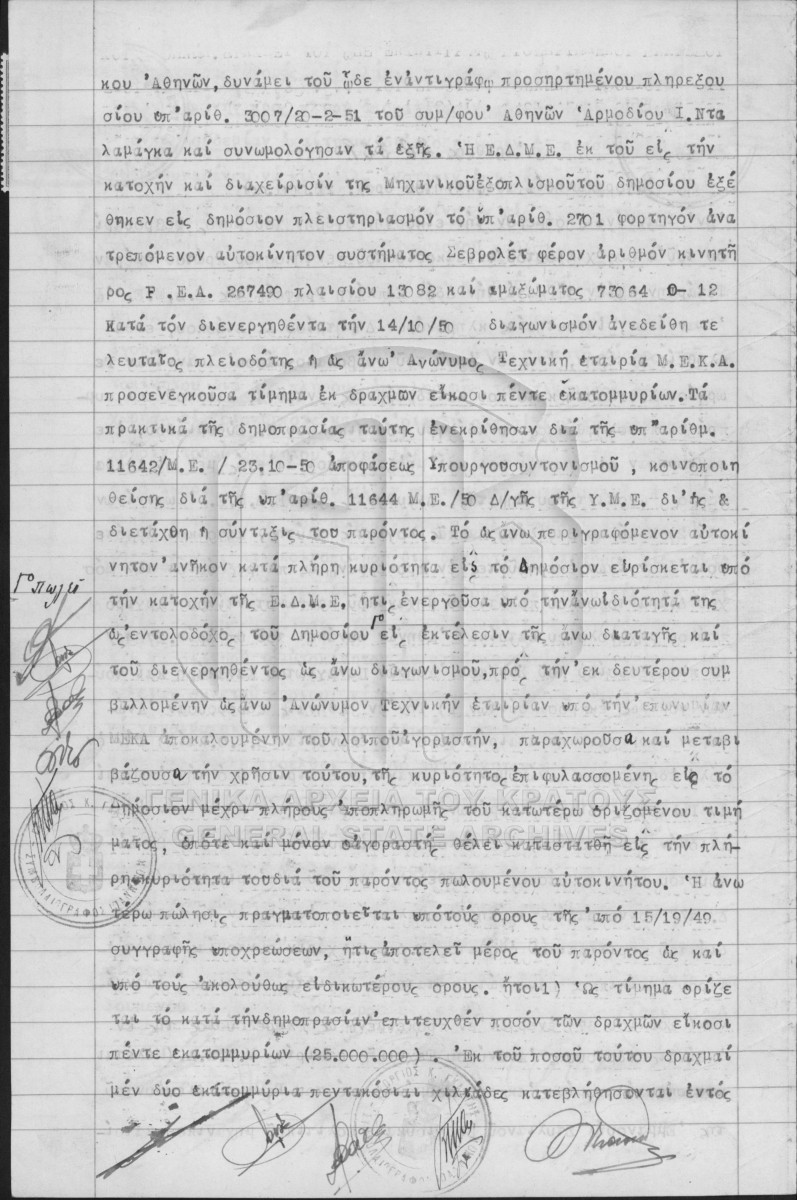 κου Ἀθηνῶν, δυνάμει τοῦ ὧδε ἐνἀντιγράφῳ προσηρτημένου πληρεξου
σίου ὑπ'ἀριθ. 3007/20-2-51 τοῦ συμ/φου Ἀθηνῶν Ἁρμοδίου Ι.Ντα
λαμάγκα καί συνωμολόγησαν τά ἑξῆς. Ἡ Ε.Δ.Μ.Ε. ἐκ τοῦ εἰς τήν
κατοχήν καί διαχείρισίν της Μηχανικοῦἐξοπλισμοῦτοῦ δημοσίου ἐξέ
θηκεν εἰς δημόσιον πλειστηριασμόν τό ὑπ'ἀριθ. 2701 φορτηγόν ἀνα
τρεπόμενον αὐτοκίνητον συστήματος Σεβρολέτ φέρον ἀριθμόν κινητῆ
ρος F .E.A. 267490 πλαισίου 13082 καί ἁμαξώματος 73064 0- 12
Κατά τόν διενεργηθέντα τήν 14/10/50 διαγωνισμόν ἀνεδείθη τε
λευταῖος πλειοδότης ἡ ὡς ἄνω Ἀνώνυμος Τεχνική ἑταιρία Μ.Ε.Κ.Α.
προσενεγκοῦσα τίμημα ἐκ δραχμῶν εἴκοσι πέντε ἑκατομμυρίων.Τά
πρακτικά τῆς δημοπρασίας ταύτης ἐνεκρίθησαν διά τῆς ὑπ'ἀρίθμ.
11642/Μ.Ε. / 23.10-50 ἀποφάσεως Ὑπουργουσυντονισμοῦ , κοινοποιη
θείσης διά τῆς ὑπ'ἀριθ. 11644 Μ.Ε./50 Δ/γῆς τῆς Υ.Μ.Ε. δι'ἧς &
διετάχθη ἡ σύνταξις τοῦ παρόντος. Τό ὡς ἄνω περιγραφόμενον αὐτοκί
νητον ἀνῆκον κατά πλήρη κυριότητα εἰς τό Δημόσιον εὑρίσκεται ὑπό
Γ πωλεῖ
τήν κατοχήν τῆς Ε.Δ.Μ.Ε. ἥτις ἐνεργοῦσα ὑπό τήνἄνωἰδιότητά της
ὡς ἐντολοδόχος τοῦ Δημοσίου Γ εἰς ἐκτέλεσιν τῆς ἄνω διαταγῆς καί
τοῦ διενεργηθέντος ὡς ἄνω διαγωνισμοῦ,πρός τήν ἐκ δευτέρου συμ
βαλλομένην ὡς ἄνω Ἀνώνυμον Τεχνικήν ἑταιρίαν ὑπό τήν ἐπωνυμίαν
ΜΕΚΑ ἀποκαλουμένην τοῦ λοιποῦἀγοραστήν, παραχωροῦσα καί μεταβι
βάζουσα τήν χρῆσιν τούτου, τῆς κυριότητος ἐπιφυλασσομένης εἰς τό
Δημόσιον μέχρι πλήρους ἀποπληρωμῆς τοῦ κατωτέρω ὁριζομένου τιμή
ΓΕΝΙΚΑ ΑΡΧΕΙΑ ΤΟΥ ΚΡΑΤΟΥΣ
GENERAL STATE ARCHIVES
ματος, ὁπότε καί μόνον ὁἀγοραστής θέλει καταστατθῆ εἰς τήν πλή-
ρηκυριότητα τοῦδιά τοῦ παρόντος πωλουμένου αὐτοκινήτου. Ἡ ἀνω
τέρω πώλησις πραγματοποιεῖται ὑπότούς ὅρους τῆς ἀπό 15/19/49
συγγραφῆς ὑποχρεώσεων, ἥτις ἀποτελεῖ μέρος τοῦ παρόντος ὡς καί
ὑπό τούς ἀκολούθως εἰδικωτέρους ὅρους. ἤτοι1) Ὡς τίμημα ὁρίζε
ται τό κατά τήνδημοπρασίαν ἐπιτευχθέν ποσόν τῶν δραχμῶν εἴκοσι
πέντε ἑκατομμυρίων (25.000.000) . Ἐκ τοῦ ποσοῦ τούτου δραχμαί
μέν δύο ἑκατομμύρια πεντακόσιαι χιλιάδες κατεβλήθησονται ἐντός